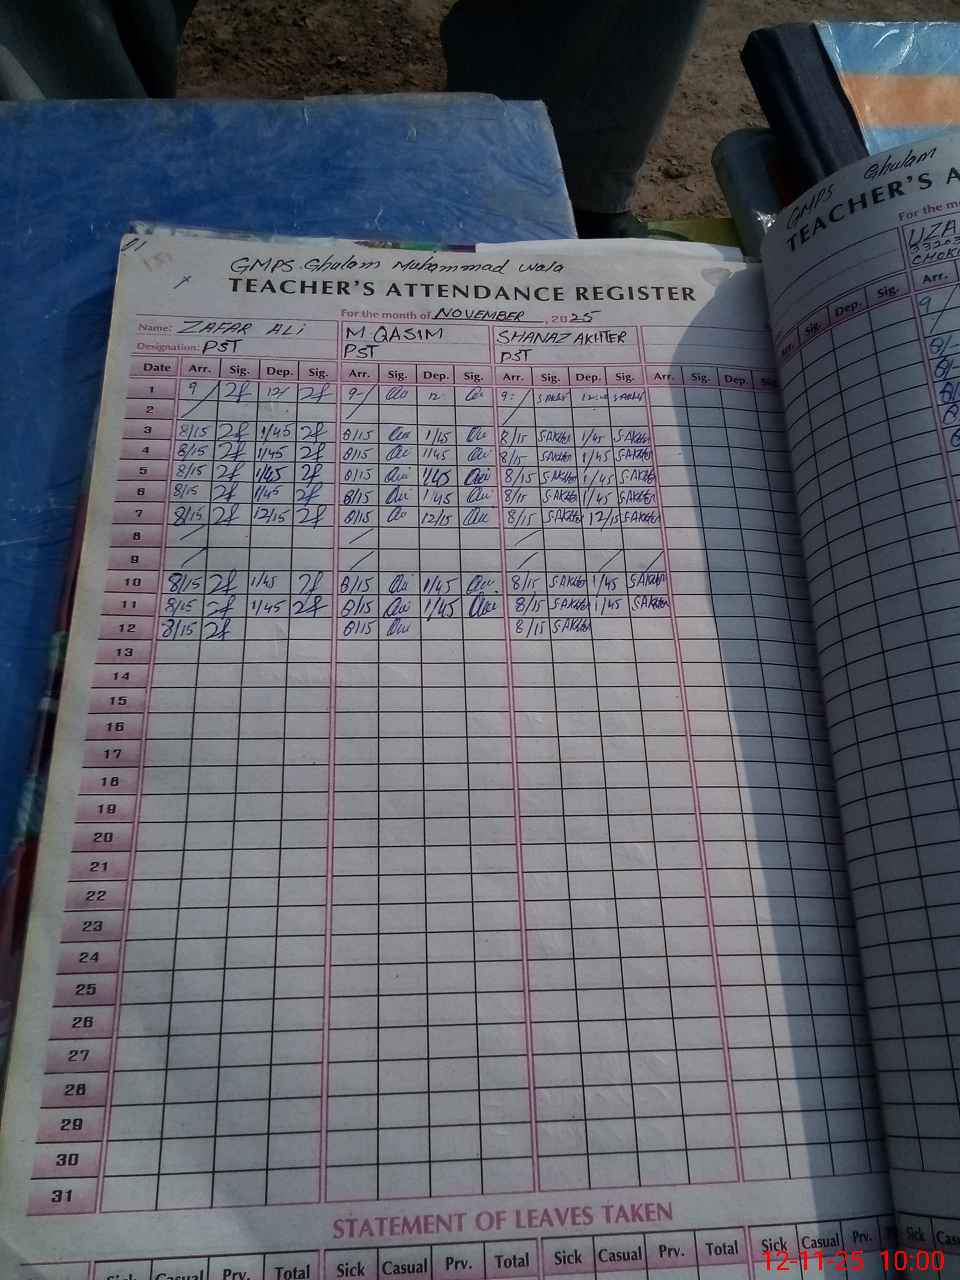 01
GMPS Ghulam Muhammad Wala
TEACHER'S ATTENDANCE REGISTER
For the month of NOVEMBER, 2025
Name: ZAFAR ALI M. QASIM SHANAZ AKHTER
Designation: PST PST PST
Date Arr. Sig. Dep. Sig. Arr. Sig. Dep. Sig. Arr. Sig. Dep. Sig. Arr. Sig. Dep. Sig.
1 9 12/ 9-/ 12 9:
2
3 8/15 1/45 8/15 1/45 8/15 S.Akhter 1/45 S.Akhter
4 8/15 1/45 8/15 1/45 8/15 S.Akhter 1/45 S.Akhter
5 8/15 1/45 8/15 1/45 8/15 S.Akhter 1/45 S.Akhter
6 8/15 1/45 8/15 1/45 8/15 S.Akhter 1/45 S.Akhter
7 8/15 12/15 8/15 12/15 8/15 S.Akhter 12/15 S.Akhter
8
9
10 8/15 1/45 8/15 1/45 8/15 S.Akhter 1/45 S.Akhter
11 8/15 1/45 8/15 1/45 8/15 S.Akhter 1/45 S.Akhter
12 8/15 8/15 8/15 S.Akhter
13
14
15
16
17
18
19
20
21
22
23
24
25
26
27
28
29
30
31
STATEMENT OF LEAVES TAKEN
Sick Casual Prv. Total Sick Casual Prv. Total Sick Casual Prv. Total Sick Casual Prv.
GMPS Ghulam
TEACHER'S A
For the mo
UZA
CHOK
Arr. Sig. Dep. Sig. Arr.
9
8/-
8/-
Sick Cas
12-11-25 10:00